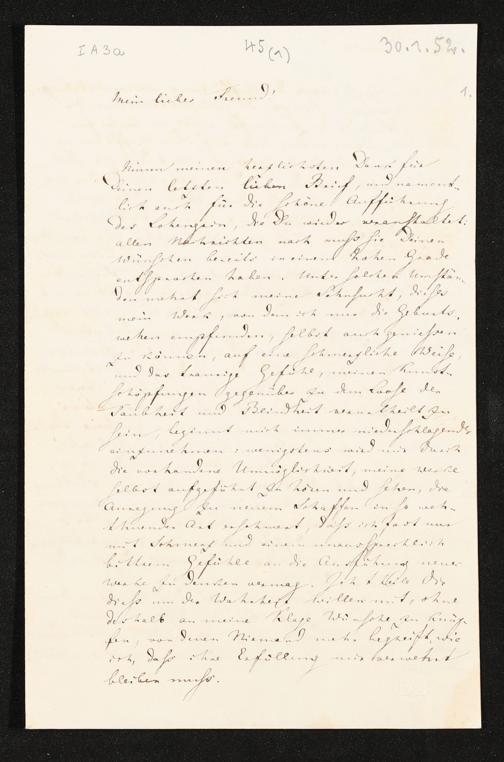 I A 3a
45 (1)
30.1.52.
1.
Mein lieber Freund!
Nimm meinen herzlichsten Dank für
Deinen letzten lieben Brief, und nament-
lich auch für die schöne Aufführung
des Lohengrin, die Du wieder veranstaltet:
allen Nachrichten nach muss sie Deinen
Wünschen bereits in einem hohen Grade
entsprochen haben. Unter solchen Umstän-
den mehrt sich meine Sehnsucht, dieses
mein Werk, von dem ich nur die Geburts-
wehen empfunden, selbst auch geniessen
zu können, auf eine schmerzliche Weise,
und das traurige Gefühl, meinen Kunst-
schöpfungen gegenüber zu dem Loose der
Taubheit und Blindheit verurtheilt zu
sein, beginnt mich immer niederschlagender
einzunehmen: wenigstens wird mir durch
die vorhandene Unmöglichkeit, meine Werke
selbst aufgeführt zu hören und sehen, die
Anregung zu neuem Schaffen in so weh-
thuender Art erschwert, dass ich fast nur
mit Schmerz und einem unaussprechlich
bitteren Gefühle an die Ausführung neuer
Werke zu denken vermag. Ich theile Dir
diess um der Wahrheit willen mit, ohne
desshalb an meine Klage Wünsche zu knüp-
fen, von denen Niemand mehr begreift, wie
ich, dass ihre Erfüllung mir verwehrt
bleiben muss.